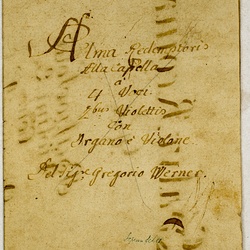 Alma Redemptoris
Alla Capella
a
4 Voci
2bus Violettis
Con
Organo è Violone.
Del Sigre Gregorio Werner.